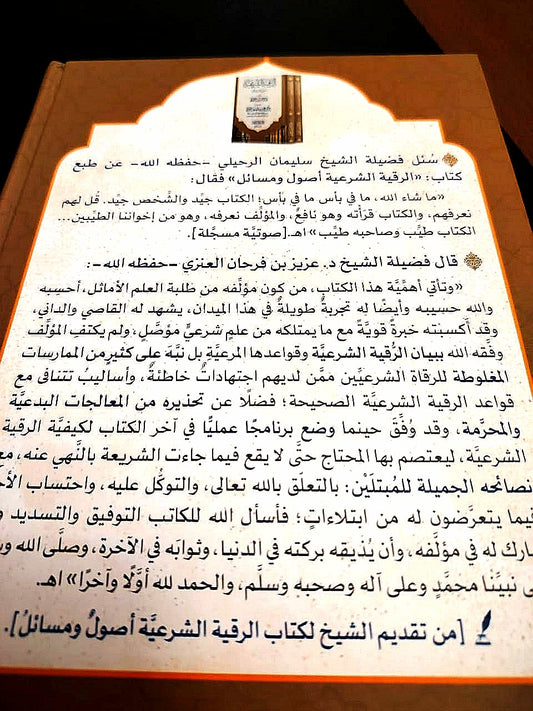 سُئل فضيلة الشيخ سليمان الرحيلي -حفظه الله- عن طبع
كتاب: «الرقية الشرعية أصول ومسائل» فقال:
«ما شاء الله، ما في بأس ما في بأس؛ الكتاب جيِّد والشَّخص جيِّد. قُل لهم
نعرفهم، والكتاب قرأتُه وهو نافعٌ، والمؤلِّف نعرفه، وهو من إخواننا الطيِّبين...
الكتاب طيِّب وصاحبه طيِّب» اهـ. [صوتيَّة مسجَّلة].
قال فضيلة الشيخ د. عزيز بن فرحان العنزي -حفظه الله-:
«وتأتي أهمِّيَّة هذا الكتاب، من كون مؤلِّفه من طلبة العلم الأماثل، أحسِبه
والله حسيبه وأيضًا له تجربةٌ طويلةٌ في هذا الميدان، يشهد له القاصي والدَّاني،
وقد أكسبته خبرةً قويَّةً مع ما يمتلكه من علمٍ شرعيٍّ مؤصَّلٍ، ولم يكتفِ المؤلِّف
وفَّقه الله ببيان الرُّقية الشرعيَّة وقواعدها المرعيَّةِ بل نبَّهَ على كثيرٍ من الممارسات
المغلوطة للرقاة الشرعيِّين ممَّن لديهم اجتهاداتٌ خاطئةٌ، وأساليبُ تتنافى مع
قواعد الرقية الشرعيَّة الصحيحة؛ فضلًا عن تحذيره من المعالجات البدعيَّة
والمحرَّمة، وقد وُفِّقَ حينما وضع برنامجًا عمليًّا في آخر الكتاب لكيفيَّة الرقية
الشرعيَّة، ليعتصم بها المحتاج حتَّى لا يقع فيما جاءت الشريعة بالنَّهي عنه، مع
نصائحه الجميلة للمُبتلَيْن: بالتعلُّق بالله تعالى، والتوكُّل عليه، واحتساب
فيما يتعرَّضون له من ابتلاءاتٍ؛ فأسأل الله للكاتب التوفيق والتسديد
له في مؤلَّفه، وأن يُذيقه بركته في الدنيا، وثوابَه في الآخرة، وصلَّى الله
نبيِّنا محمَّدٍ وعلى آله وصحبه وسلَّم، والحمد لله أوَّلًا وآخرًا» اهـ.
[من تقديم الشيخ لكتاب الرقية الشرعيَّة أصولٌ ومسائلُ].